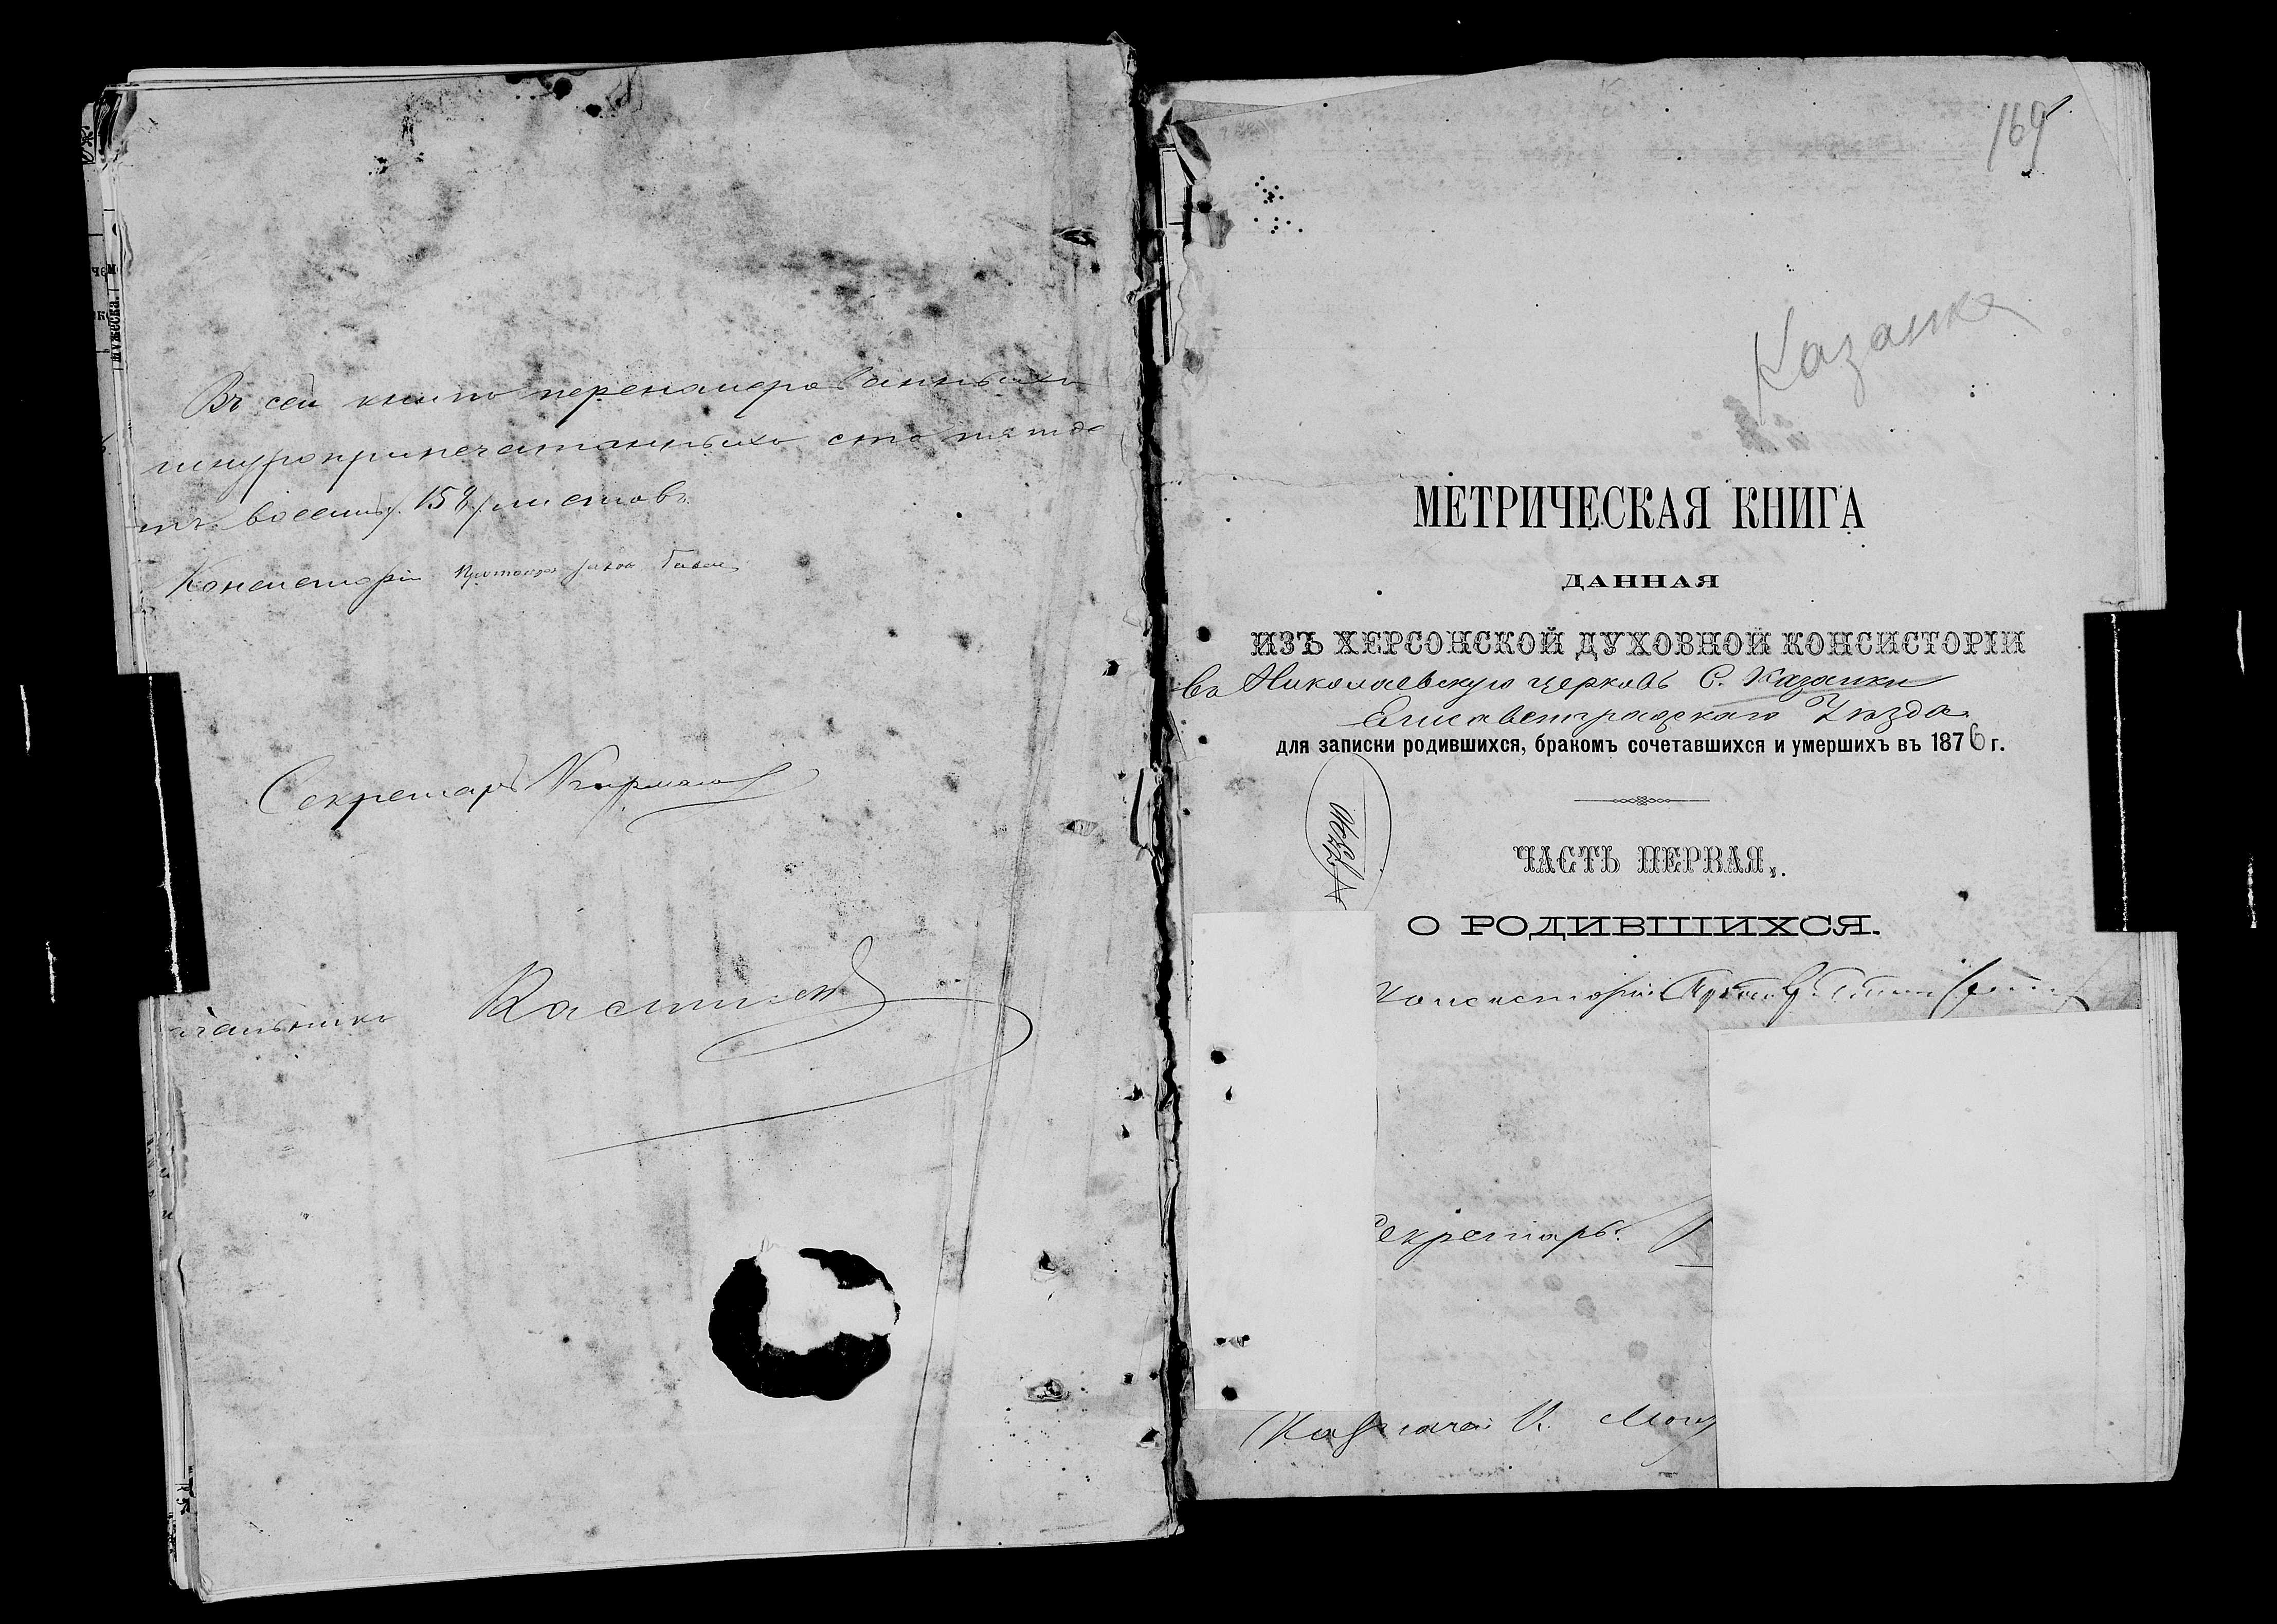 Въ сей книгѣ перенумерованныхъ
шнуроприпечатанныхъ сто пятьде
сятъ восемь /158/ листовъ.
Консисторіи
Секретарь
169
Казанка
МЕТРИЧЕСКАЯ КНИГА
ДАННАЯ
ИЗЪ ХЕРСОНСКОЙ ДУХОВНОЙ КОНСИСТОРІИ
въ Николаевскую церковь С. Казанки
Елисаветградскаго Уѣзда
для записки родившихся, бракомъ сочетавшихся и умершихъ въ 1876 г.
ЧАСТЬ ПЕРВАЯ.
О РОДИВШИХСЯ.
Консисторіи
Секретарь